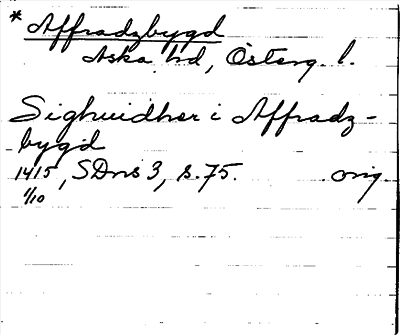 * Affradzbygd
Aska hd, Österg. l.
Sighuidher i Affradz-
bygd
1415, SDns 3, s. 75. orig.
1/10